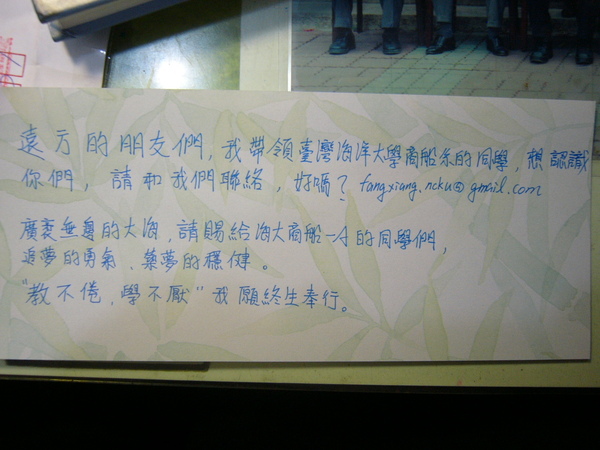 遠方的朋友們，我帶領臺灣海洋大學商船系的同學，想認識
你們，請和我們聯絡，好嗎？fangxiang.ncku@gmail.com
廣袤無邊的大海，請賜給海大商船一A的同學們，
追夢的勇氣、築夢的穩健。
"教不倦，學不厭"我願終生奉行。